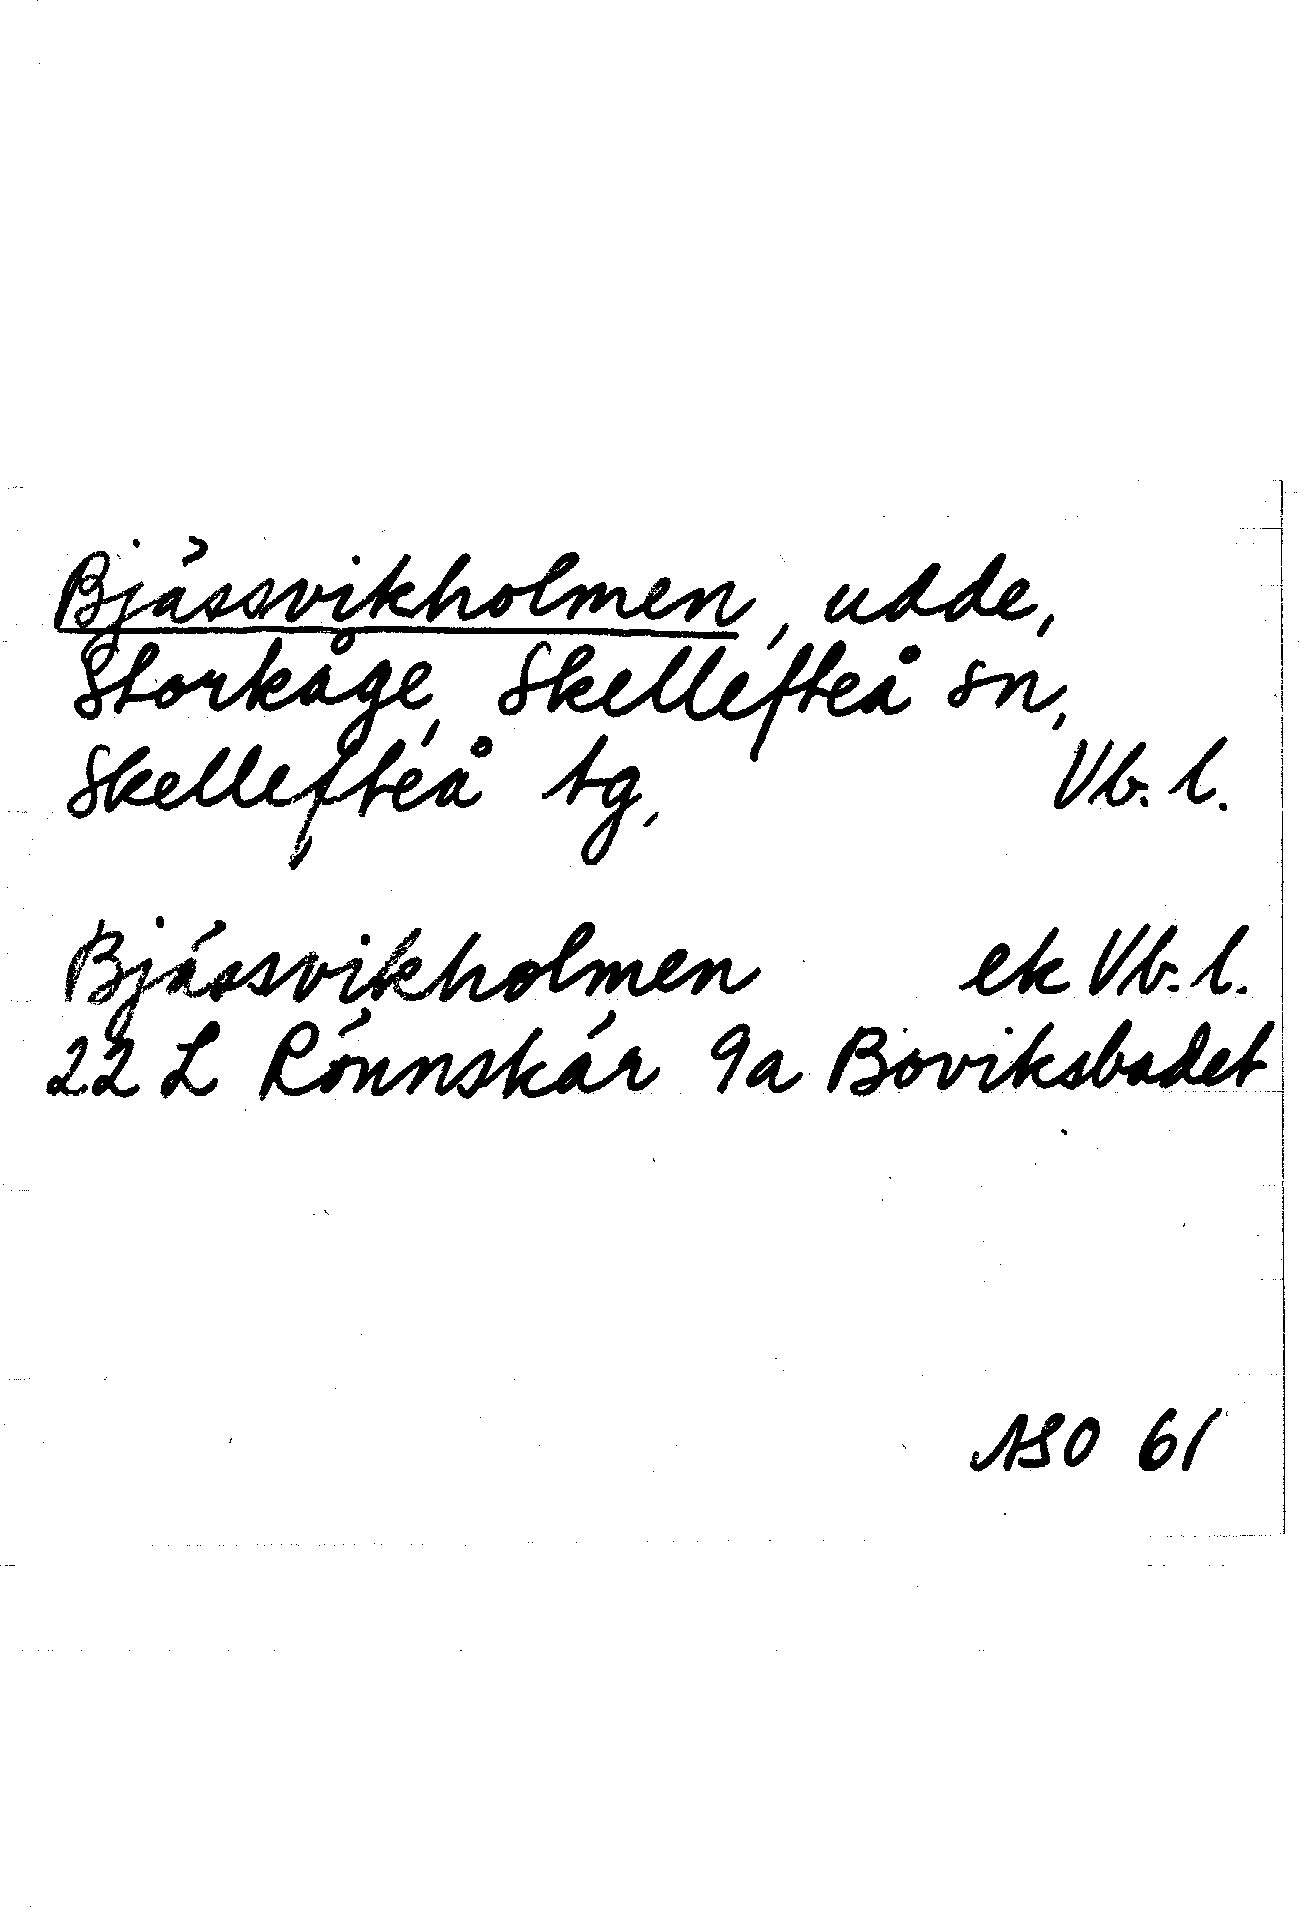 Bjässvikholmen, udde,
Storkåge, Skellefteå sn,
Skellefteå tg, Vb. l.
Bjässvikholmen ek Vb. l.
22 L Rönnskär 9a Boviksbadet
ASO 61